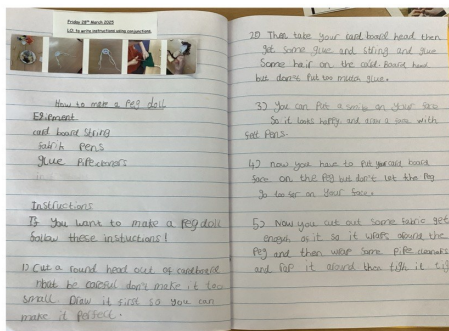 Friday 28th March 2025
L.O: to write instructions using conjunctions.
How to make a Peg doll
card board String
Pens
glue
Instructions
If you want to make a Peg doll
follow these instuctions!
1) Cut a round head out of cardboard
but be careful don't make it too
small. Draw it first so you can
make it perfect.
2) Then take your card board head then
get some glue and string and glue
Some hair on the card-Board head
but don't Put too much glue.
3) You can Put a smile on your face
So it looks happy and draw a face with
felt Pens.
4) now you have to Put your card board
face on the Peg but don't let the Peg
go too far on your face.
5) Now you cut out some fabric get
enough of it so it wraps around the
Peg and then wrap some Pipe
and it around then it